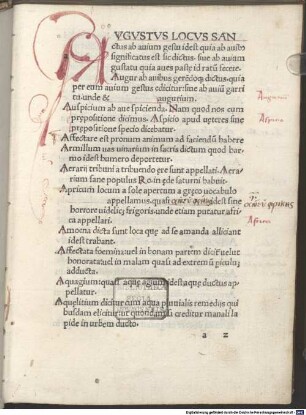 AVGVSTVS LOCVS SAN
ctus ab auium gestu idest quia ab auibus
significatus est sic dictus. siue ab auium
gustatu quia aues paste id ratum fecere.
Augur ab auibus gerēdoq; dictus. quia
per eum auium gestus edicitur: siue ab auiū garri
tu. unde & augurium.
Auspicium ab aue spicienda. Nam quod nos cum
prepositione dicimus. Aspicio apud ueteres sine
prepositione specio dicebatur.
Affectare est pronum animum ad faciendū habere
Armillum uas uinarium in sacris dictum quod har
mo idest humero deportetur.
Aerarii tribuni a tribuendo ere sunt appellati. Aera
rium sane populus Ro. in ede saturni habuit.
Apricum locum a sole apertum a greco uocabulo
appellamus. quasi idest sine
horrore uidelicet frigoris unde etiam putatur afri
ca appellari.
Amoena dicta sunt loca que ad se amanda alliciant
idest trahant.
Affectata foemina uel in bonam partem dicitur uelut
honorata: uel in malum quasi ad extremū periculū
adducta.
Aquagium quasi aque agium idest aque ductus ap
pellatur.
Aquelitium dicitur cum aqua pluuialis remediis qui
busdam elicitur ut quondam si creditur manali la
pide in urbem ducto.
a 2
Augurium
Aspicio
Africa